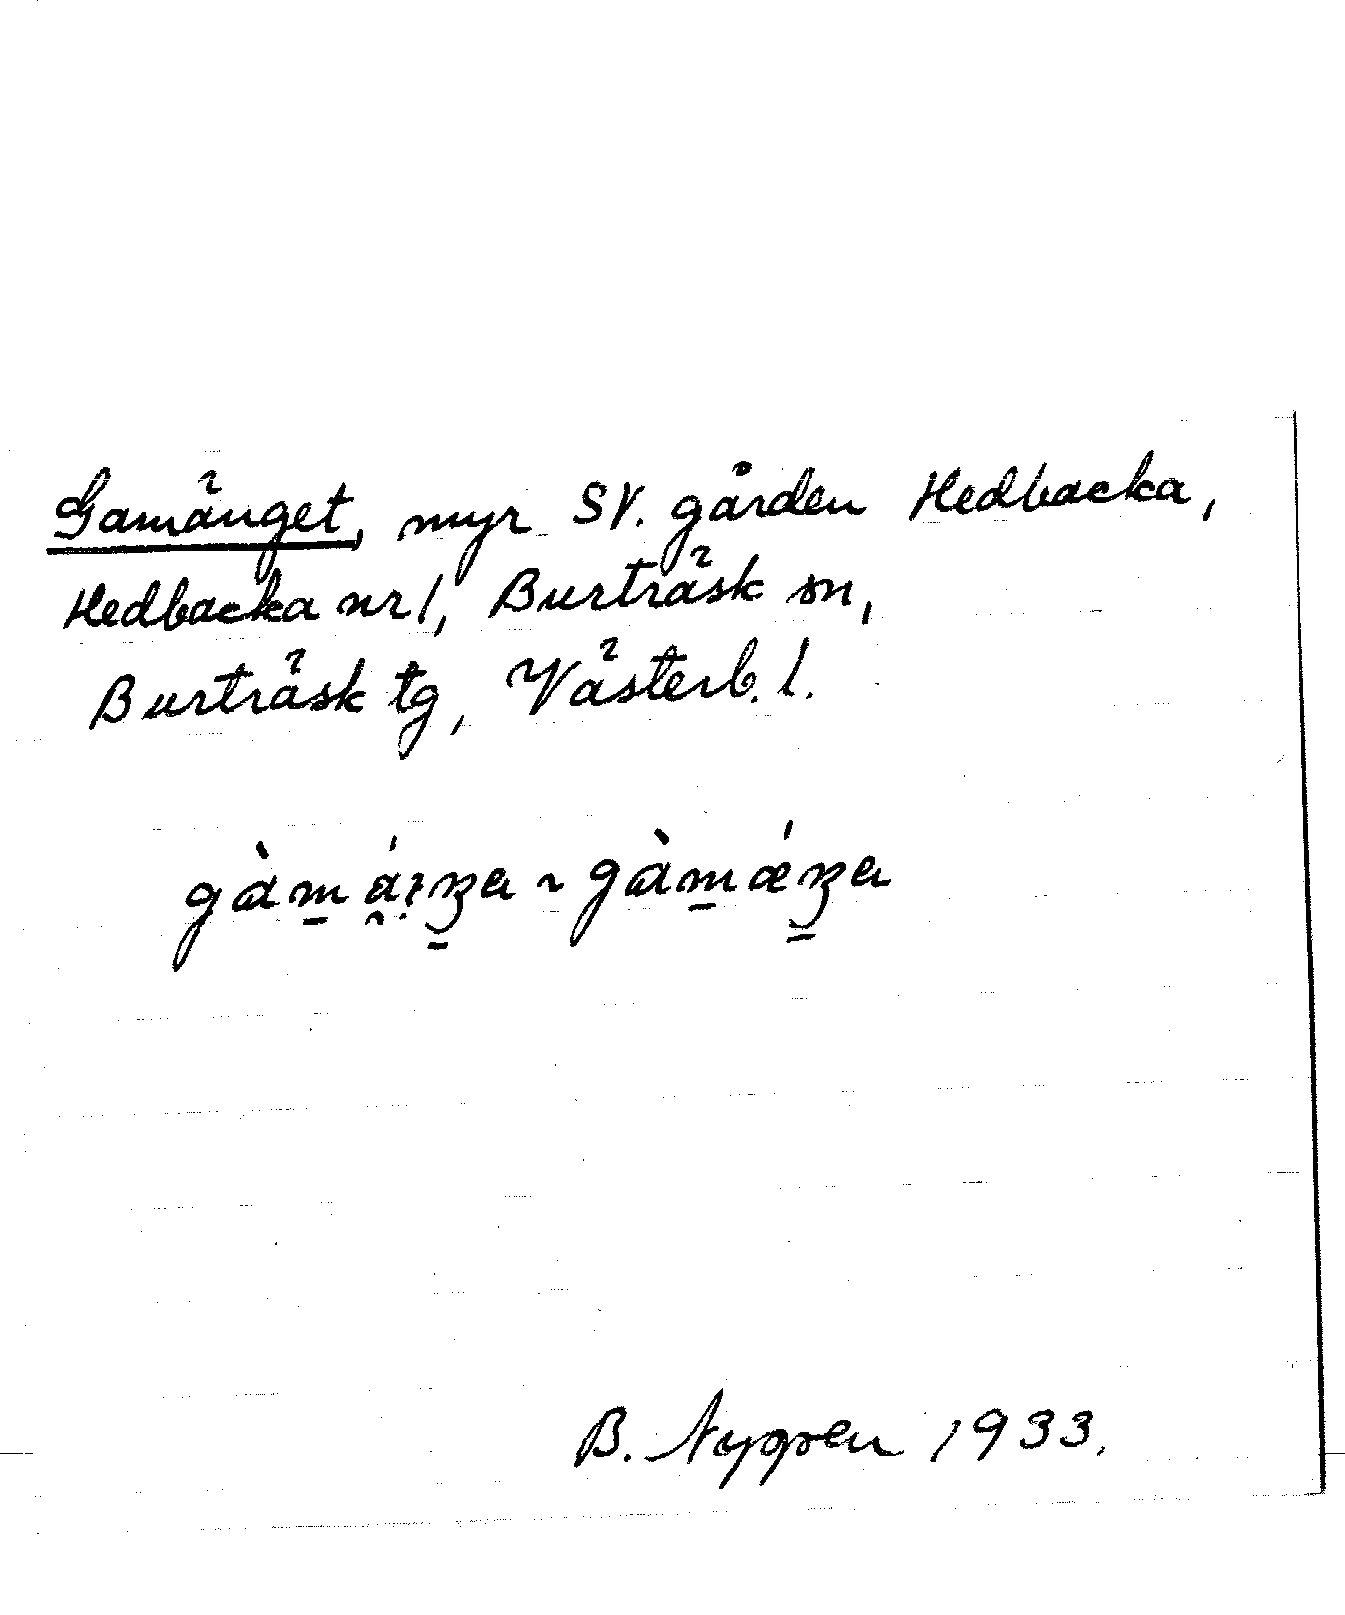 Gamänget, myr SV. gården Hedbacka,
Hedbacka nr 1, Burträsk sn,
Burträsk tg, Västerb. l.
B. Nygren 1933.